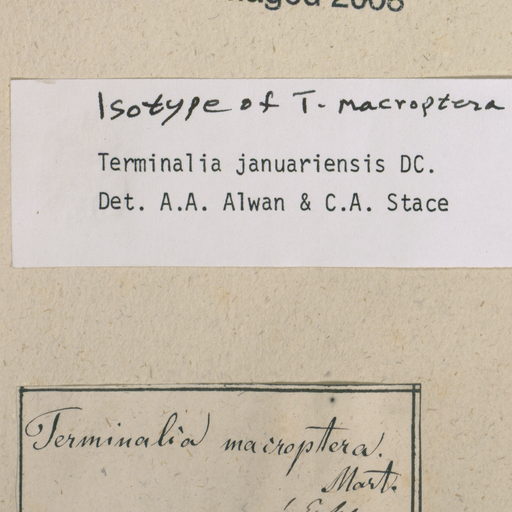 2008
Isotype of T. macroptera
Terminalia januariensis DC.
Det. A.A. Alwan & C.A. Stace
Terminalia macroptera.
Mart.